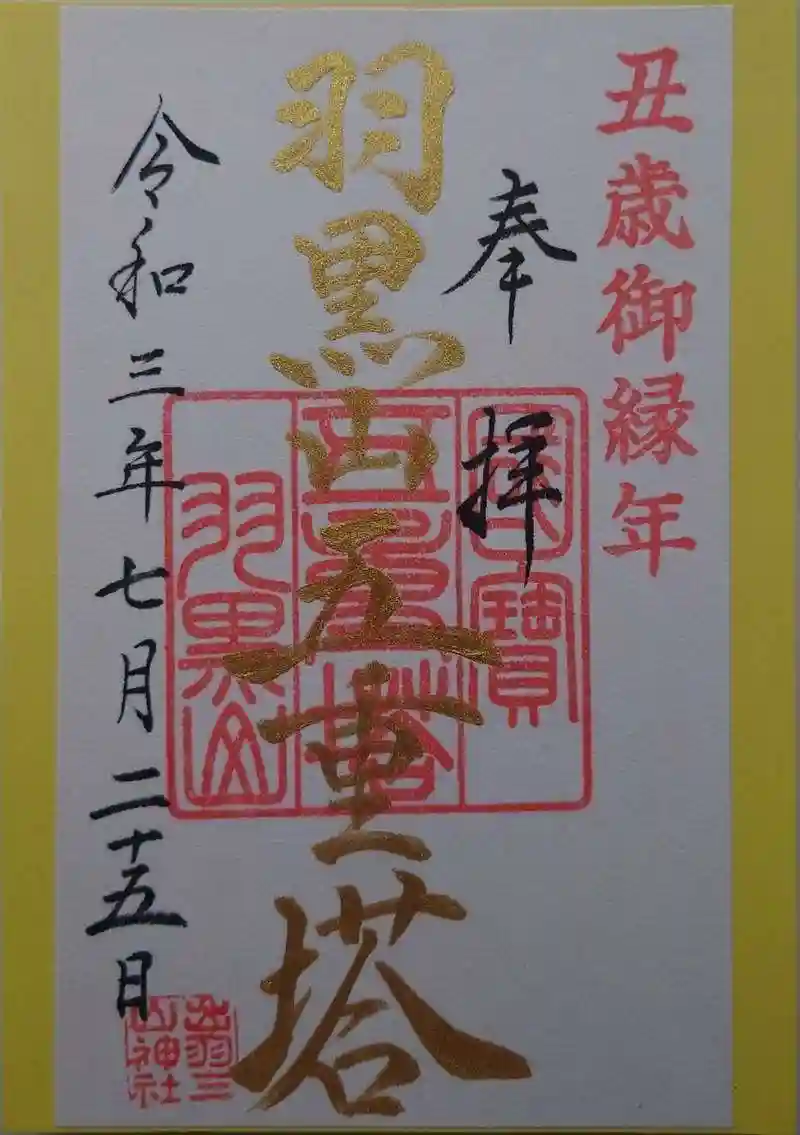 丑歳御縁年
奉拝
羽黒山五重塔
国寳
五重塔
羽黒山
令和三年七月二十五日
出羽三
山神社